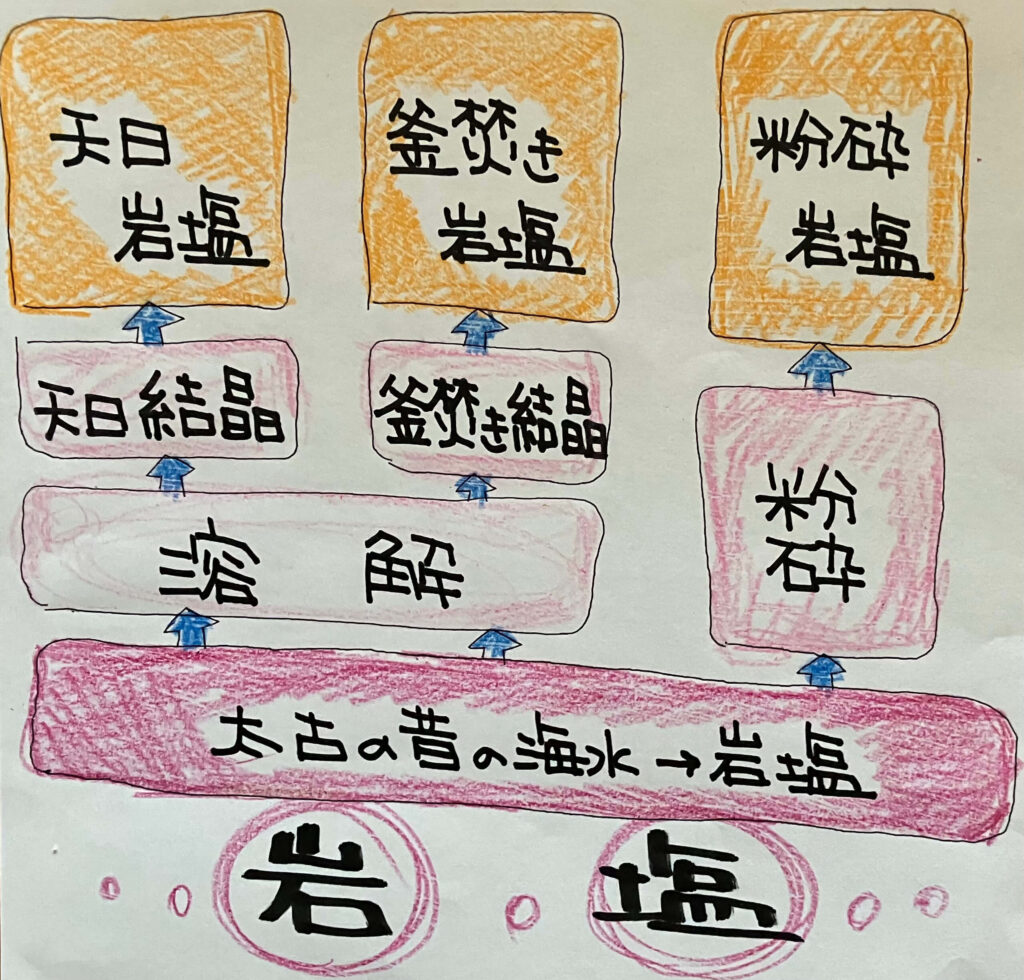 天日
岩塩
釜焚き
岩塩
粉砕
岩塩
天日結晶
釜焚き結晶
粉
砕
溶解
太古の昔の海水→岩塩
岩塩